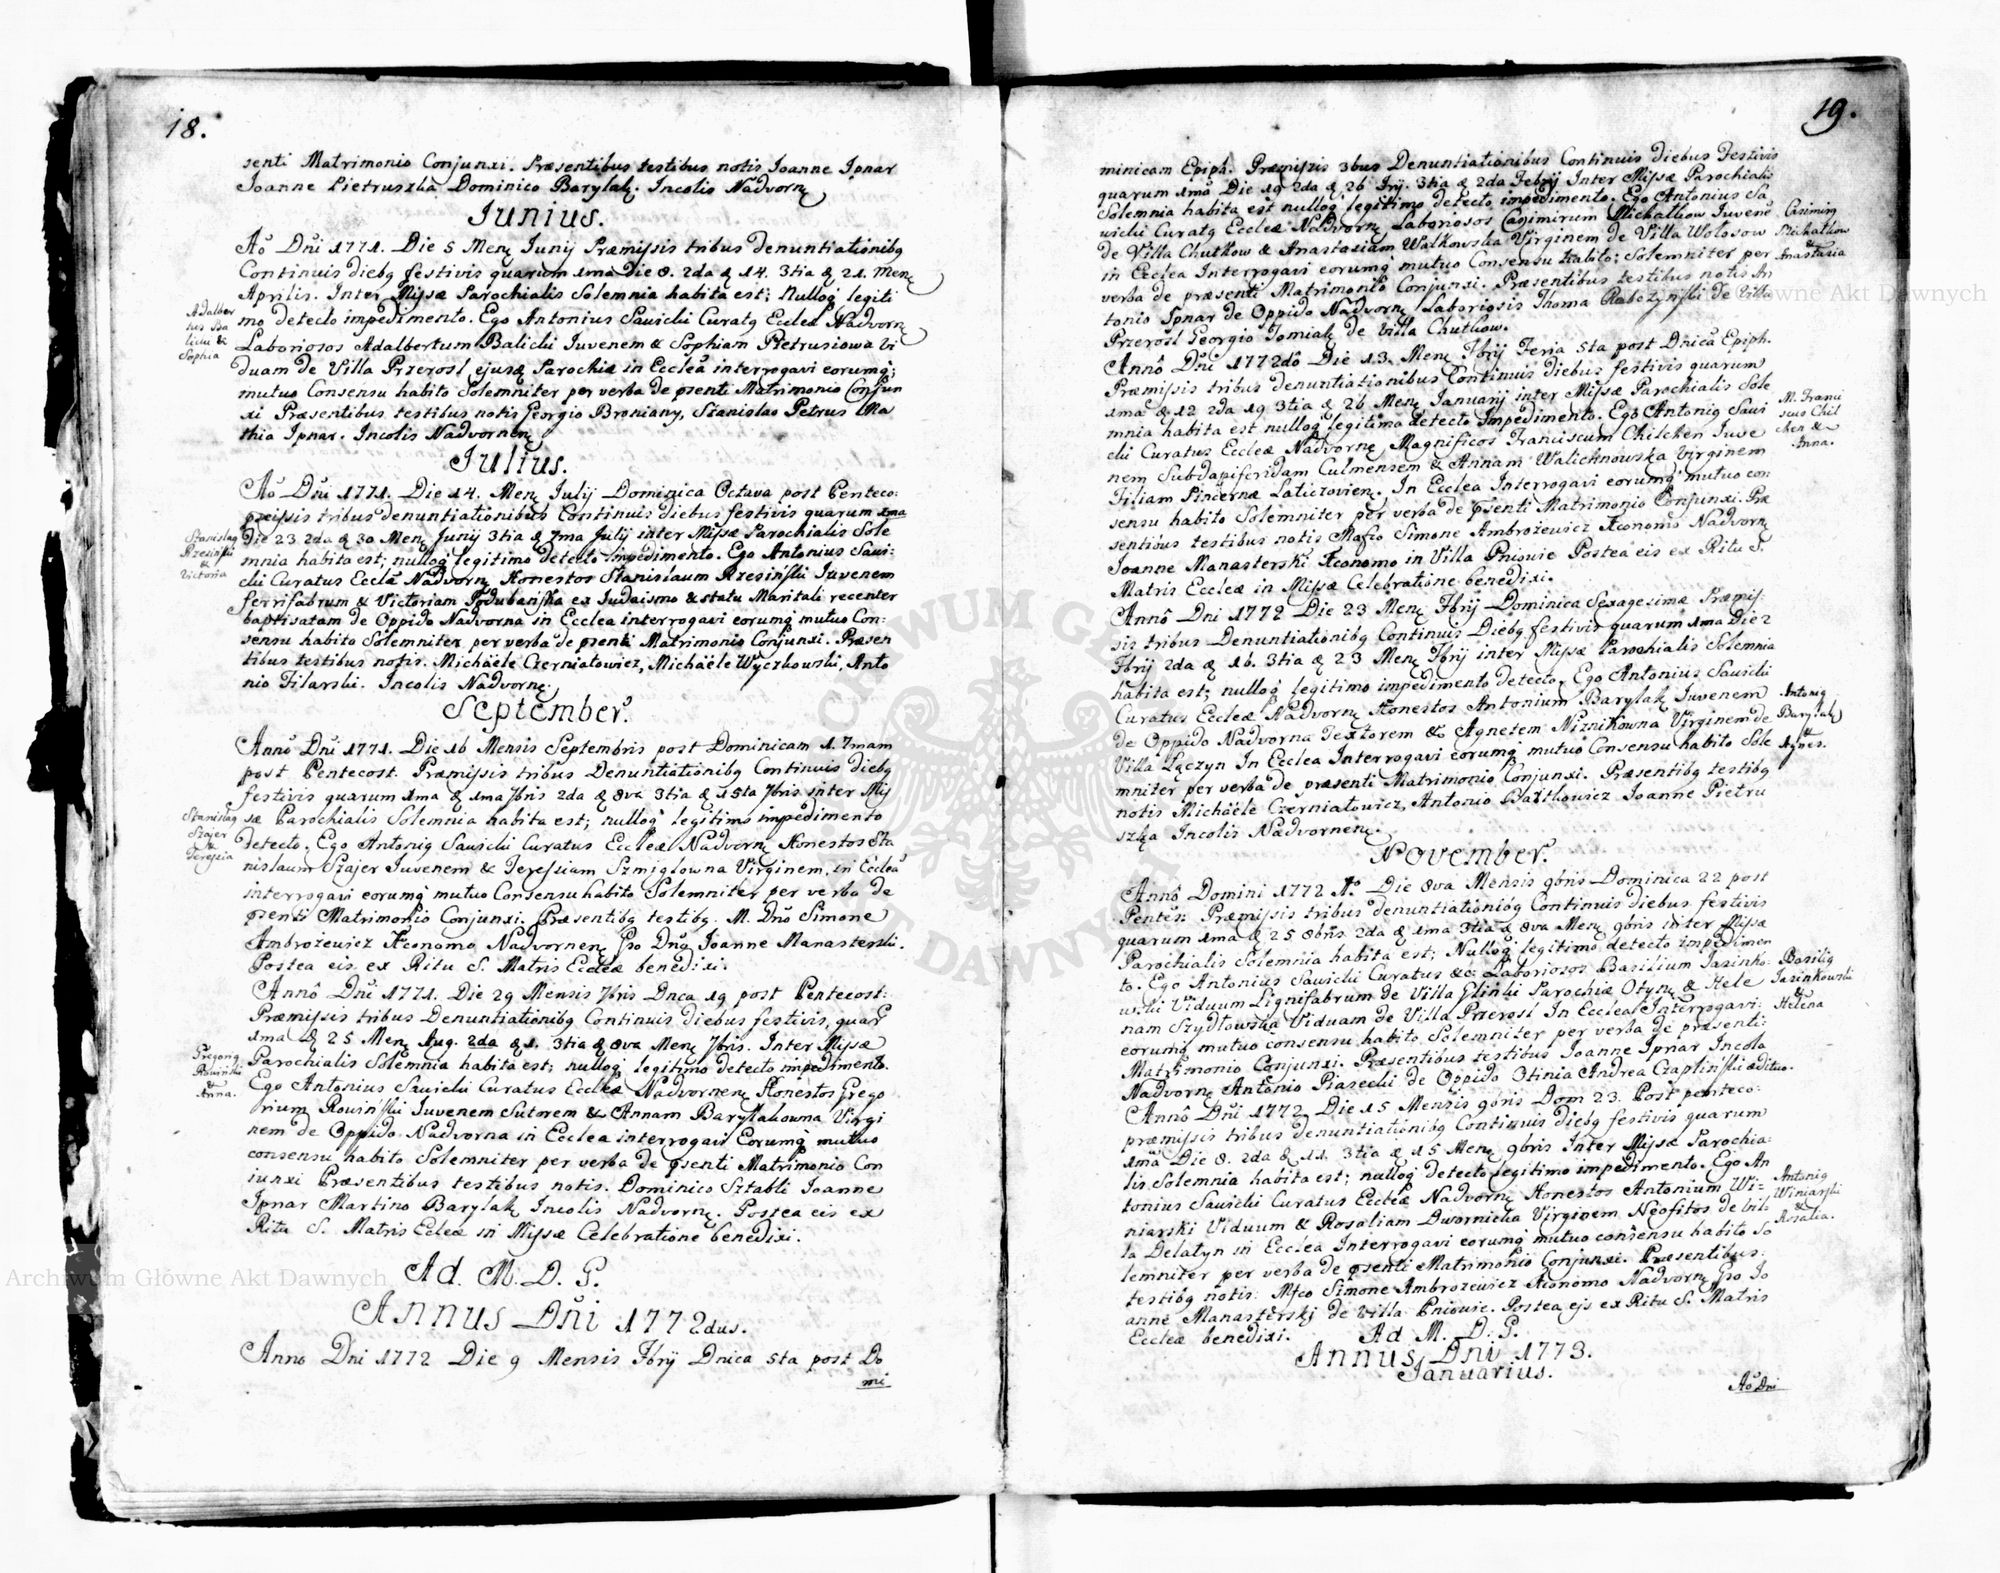 18.
senti Matrimonio Conjunxi. Præsentibus testibus notis Joanne Ipnar
Joanne Pietruszka Dominico Barylak. Incolis Nadvorn
Junius.
Aõ Dñi 1771. Die 5 Men Junij Præmissis tribus denuntiationibq
Continuis diebq festivis quarum 1ma die 8. 2da & 14. 3tia & 21. Men
Aprilis. Inter Missæ Parochialis Solemnia habita est; Nulloq legiti
mo detecto impedimento. Ego Antonius Sawicki Curatq Eccleæ Nadvorn
Laboriosos Adalbertum Balicki Juvenem & Sophiam Pietrusiowa Vi
duam de Villa Przerosl ejusq Parochiæ in Ecclea interrogavi eorumq;
mutuo Consensu habito Solemniter per verba de psenti Matrimonio Conjun
xi Præsentibus testibus notis Georgio Broniany, Stanislao Petrus Ma
thia Ipnar. Incolis Nadvornen
Adalber
tus Ba
licki &
Sophia
Julius.
Aõ Dñi 1771. Die 14. Men Julij Dominica Octava post Penteco:
præissis tribus denuntiationibus Continuis diebus festivis quarum 1ma
Die 23 2da & 30 Men Junij 3tia & 7ma Julij inter Missæ Parochialis Sole
mnia habita est; nulloq legitimo detecto impedimento. Ego Antonius Sawi:
cki Curatus Eccla Nadvorn Honestos Stanislaum Rzesinski Juvenem
ferrifabrum & Victoriam Podubanska ex Judaismo & statu Maritali recenter
baptisatam de Oppido Nadvorna in Ecclea interrogavi eorumq mutuo Con:
sensu habito Solemniter per verba de psenti Matrimonio Conjunxi. Præsen
tibus testibus notis. Michäele Czerniatowicz, Michäele Wyczkowski, Anto
nio Filarski. Incolis Nadvorn.
Stanislaq
Rzesinski
&
Victoria
September.
Annô Dñi 1771. Die 16 Mensis Septembris post Dominicam 17mam
post Pentecost. Præmissis tribus Denuntiationibq Continuis diebq
festivis quarum 1ma & 1ma 7bris 2da & 8va 3tia & 15ta 7bris inter Mis
sæ Parochialis Solemnia habita est; nulloq legitimo impedimento
detecto. Ego Antoniq Sawicki Curatus Eccleæ Nadvorn Honestos Sta
nislaum Szajer Juvenem & Teressiam Szmiglowna Virginem, in Ecclea
interrogavi eorumq mutuo Consensu habito Solemniter per verba de
psenti Matrimonio Conjunxi. Præsentibq testibq. M. Dnõ Simone
Ambrozewicz Æconomo Nadvornen Gso Dnõ Joanne Manasterski.
Postea eis ex Ritu S. Matris Eccleæ benedixi.
Stanislaq
Szajer
&
Teressia
Annô Dñi 1771. Die 29 Mensis 7bris Dnca 19 post Pentecost:
Præmissis tribus Denuntiationibq Continuis diebus festivis, quar
1ma & 25 Men Aug. 2da & 1. 3tia & 8va Men 7bris. Inter Missæ
Parochialis Solemnia habita est; nulloq legitimo detecto impedimento.
Ego Antonius Sawicki Curatus Eccleæ Nadvornen Honestos Grego
rium Rowinski Juvenem Sutorem & Annam Barylakowna Virgi
nem de Oppido Nadvorna in Ecclea interrogavi Eorumq mutuo
consensu habito Solemniter per verba de psenti Matrimonio Con
iunxi Præsentibus testibus notis. Dominico Sztabli Joanne
Ipnar Martino Barylak Incolis Nadvorn. Postea eis ex
Ritu S. Matris Ecleæ in Missæ Celebratione benedixi.
Gregoriq
Rowinski
&
Anna.
Ad. M. D. G.
Annus Dñi 1772dus.
Anno Dni 1772 Die 9 Mensis Fbrij Dnica 5ta post Do
mi
19.
minicam Epiph. Præmissis 3bus Denuntiationibus Continuis diebus Festivis
quarum 1ma Die 19 2da & 26 Irij. 3tia & 2da Febrij Inter Missæ Parochialis
Solemnia habita est nulloq legitimo detecto impedimento. Ego Antonius Sa
wicki Curatq Eccleæ Nadvorn Laboriosos Casimirum Michatkow Juvene
de Villa Chutkow & Anastasiam Walkowska Virginem de Villa Wolosow
in Ecclea Interrogavi eorumq mutuo Consensu habito; Solemniter per
verba de præsenti Matrimonio Conjunxi. Præsentibus testibus notis An
tonio Ipnar de Oppido Nadvorn Laboriosis Thoma Rabczynski de Villa
Przerosl Georgio Tomiak de Villa Chutkow.
Casimirq
&
Anastasia
Annô Dñi 1772dô Die 13. Men Fbrij Feria 5ta post Dnica Epiph.
Præmissis tribus denuntiationibus Continuis diebus festivis quarum
1ma & 12 2da 19 3tia & 26 Men Januarij inter Missæ Parochialis Sole
mnia habita est nulloq legitimo detecto Impedimento. Ego Antoniq Sawi
cki Curatus Eccleæ Nadvorn Magnificos Franciscum Chilchen Juve
nem Subdapiferidam Culmensem & Annam Walichnowska Virginem
Filiam Pincernæ Laticzovien. In Ecclea Interrogavi eorumq mutuo con
sensu habito Solemniter per verba de psenti Matrimonio Conjunxi. Præ
sentibus testibus notis Mafco Simone Ambrozewicz Æconomo Nadvorn
Joanne Manasterski Æconomo in Villa Pniowie Postea eis ex Ritu S.
Matris Eccleæ in Missæ Celebratione benedixi.
M. Franci
scus Chil
chen &
Anna.
Annô Dni 1772 Die 23 Men Fbrij Dominica Sexagesimæ Præmis:
sis tribus Denuntiationibq Continuis Diebq festivis quarum 1ma Die 2
Fbrij 2da & 16. 3tia & 23 Men Fbrij inter Missæ Parochialis Solemnia
habita est; nulloq legitimo impedimento detecto. Ego Antonius Sawicki
Curatus Eccleæ Nadvorn Honestos Antonium Barylak Juvenem
de Oppido Nadvorna Textorem & Agnetem Niznikowna Virginem de
Villa Lączyn In Ecclea Interrogavi eorumq mutuo Consensu habito Sole
mniter per verba de præsenti Matrimonio Conjunxi. Præsentibq testibq
notis Michäele Czerniatowicz, Antonio Bartkowicz Joanne Pietru
szka Incolis Nadvornen.
Antoniq
Barylak
&
Agnes.
November.
Annô Domini 1772 Aº Die 8va Mensis 9bris Dominica 22 post
Penten: Præmissis tribus denuntiationibq Continuis Diebus festivis
quarum 1ma & 25 8bris 2da & 1ma 3tia & 8va Men 9bris inter Missæ
Parochialis Solemnia habita est; Nulloq legitimo detecto impedimen
to. Ego Antonius Sawicki Curatus &c: Laboriosos Basilium Jasinko:
wski Viduum Lignifabrum de Villa Glinki Parochiæ Otyn & Hele
nam Szydlowska Viduam de Villa Przerosl In Ecclea Interrogavi:
eorumq mutuo consensu habito Solemniter per verba de præsenti:
Matrimonio Conjunxi. Præsentibus testibus Joanne Ipnar Incola
Nadvorn Antonio Piasecki de Oppido Otinia Andrea Czaplinski ædituo.
Basiliq
Jasinkowski
&
Helena
Annô Dñi 1772 Die 15 Mensis 9bris Dom 23. Post penteco:
præmissis tribus denuntiationibq Continuis diebq festivis quarum
1ma Die 8. 2da & 11. 3tia & 15 Men 9bris Inter Missæ Parochia:
lis Solemnia habita est; nulloq detecto legitimo impedimento. Ego An
tonius Sawicki Curatus Eccleæ Nadvorn Honestos Antonium Wi=
niarski Viduum & Rosaliam Dwornicka Virginem Neofitos de Vil:
la Delatyn in Ecclea Interrogavi eorumq mutuo consensu habito So
lemniter per verba de psenti Matrimonio Conjunxi. Præsentibus:
testibq notis: Mfco Simone Ambrozewicz Æconomo Nadvorn Gso Jo
anne Manasterskj de Villa Pniowie. Postea ejs ex Ritu S. Matris
Eccleæ benedixi.
Antoniq
Winiarski
&
Rosalia.
Ad M. D. G.
Annus Dni 1773.
Januarius.
Aõ Dni
Archiwum Główne Akt Dawnych
Archiwum Główne Akt Dawnych
ARCHIWUM GŁÓWNE AKT DAWNYCH